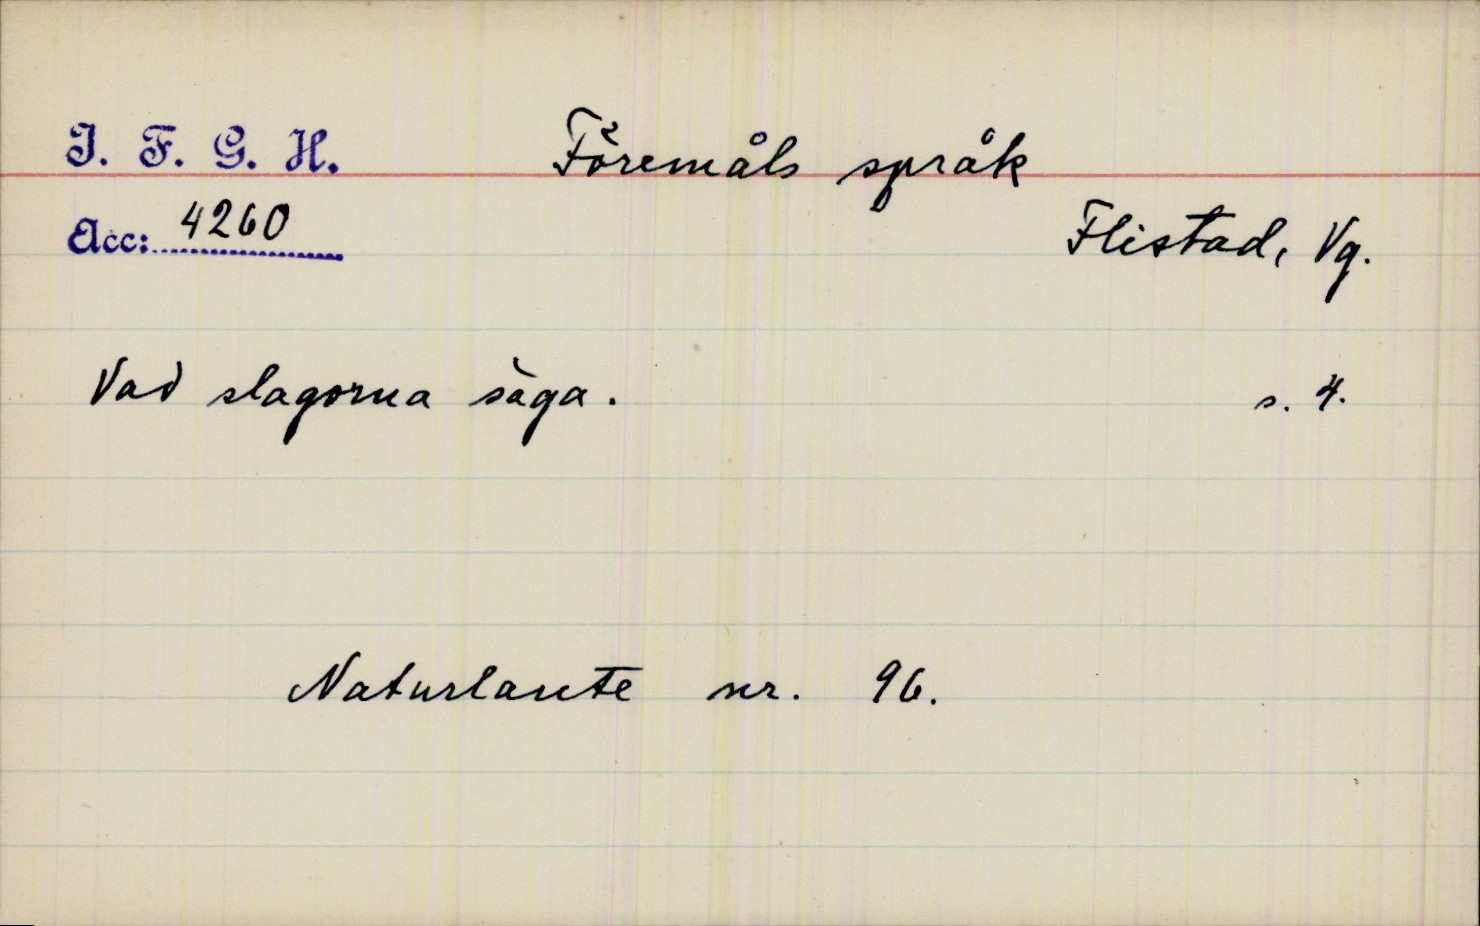 I. F. G. H.
Föremåls språk
Acc: 4260
Flistad, Vg.
Vad slagorna säga. s. 4.
Naturlaute nr. 96.